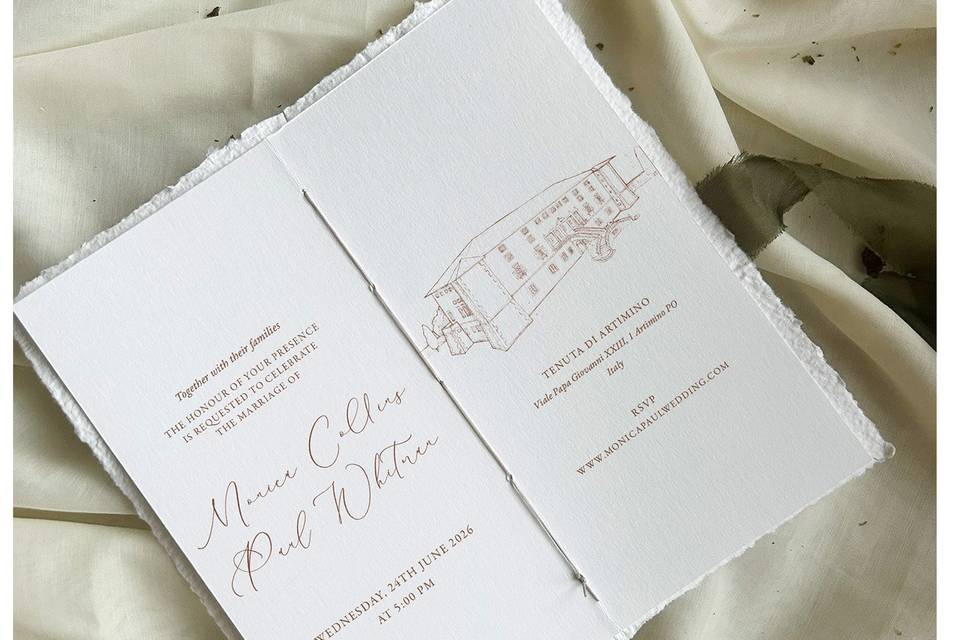 Together with their families
THE HONOUR OF YOUR PRESENCE
IS REQUESTED TO CELEBRATE
THE MARRIAGE OF
Monica Collins
Paul Whitman
WEDNESDAY, 24TH JUNE 2026
AT 5:00 PM
TENUTA DI ARTIMINO
Viale Papa Giovanni XXIII, 1 Artimino PO
Italy
RSVP
WWW.MONICAPAULWEDDING.COM